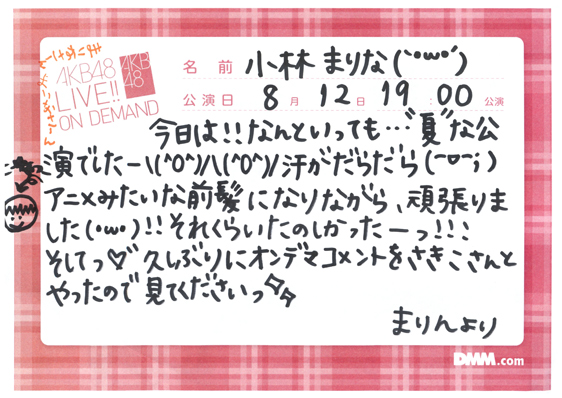 AKB48
LIVE!!
ON DEMAND
AKB
48
名前 小林 まりな(｀・ω・´)
公演日 8月 12日 19:00 公演
今日は!!なんといっても…"夏"な公
演でしたー\(^O^)/\(^O^)/汗がだらだら(ーー;)
アニメみたいな前髪になりながら、頑張りま
した(・ω・)!!それくらいたのしかったーっ!!!
そしてっ♡久しぶりにオンデマコメントをさきこさんと
やったので見てくださいっ
まりんより
DMM.com